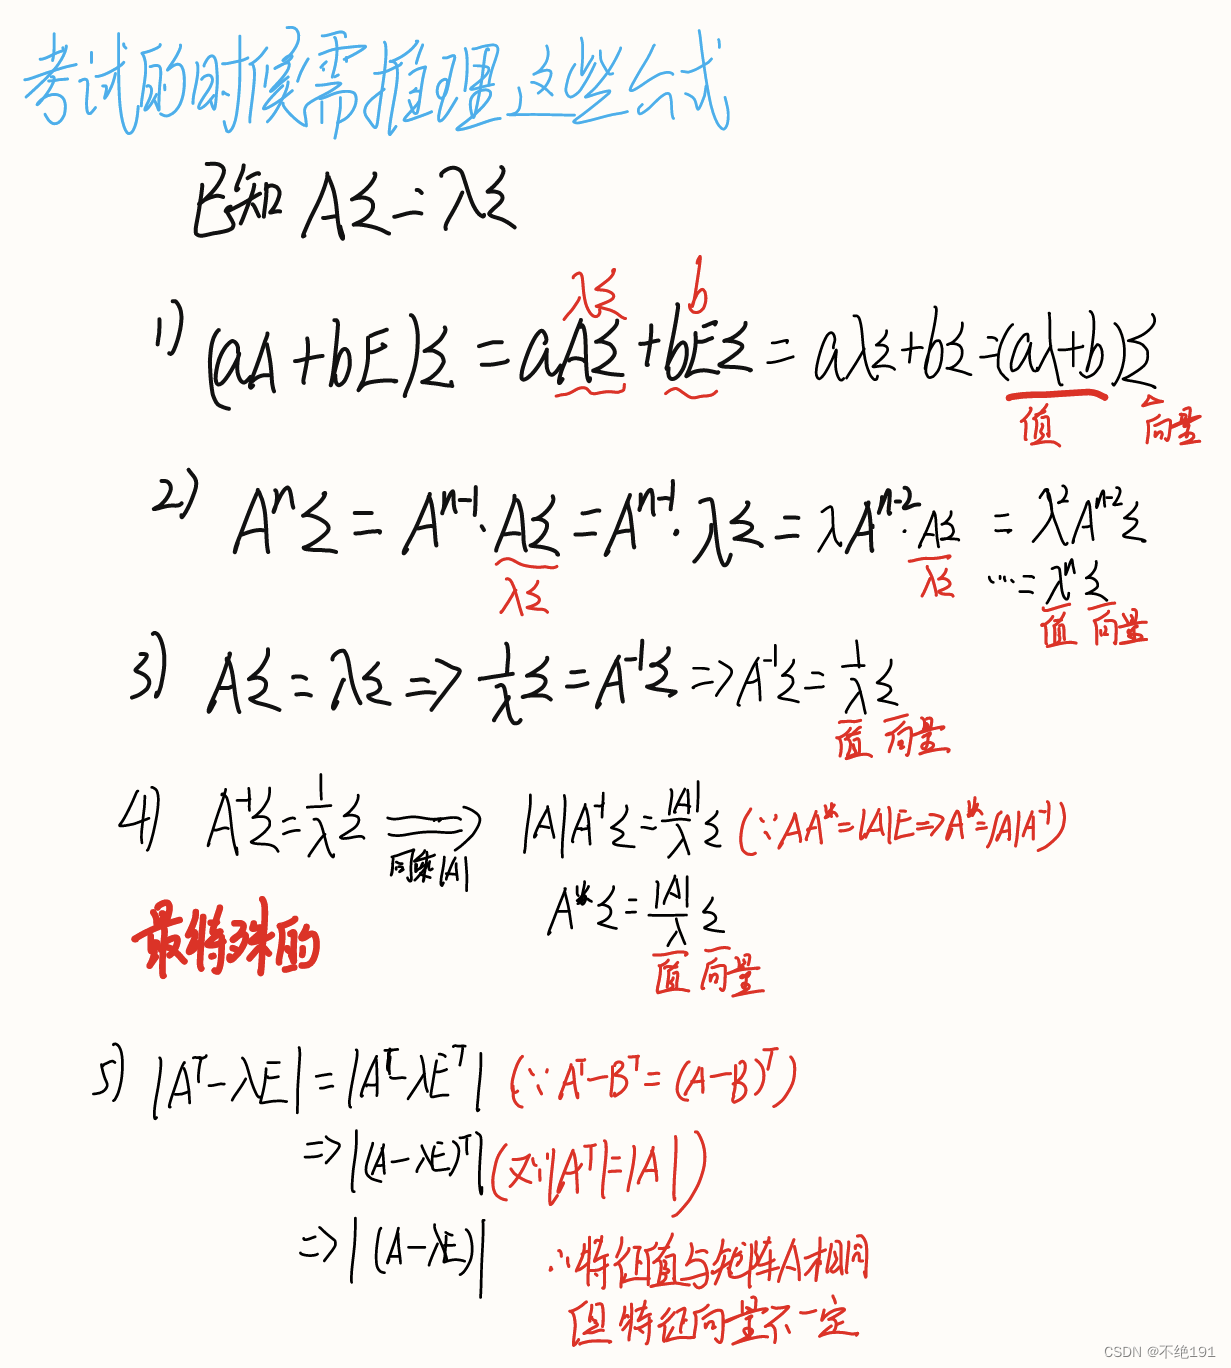 考试的时候需推理这些公式
已知 Aξ=λξ
λξ b
1) (aA+bE)ξ = aAξ+bEξ = aλξ+bξ=(aλ+b)ξ
值 向量
2) Aⁿξ = Aⁿ⁻¹·Aξ = Aⁿ⁻¹·λξ = λAⁿ⁻²·Aξ = λ²Aⁿ⁻²ξ
λξ λξ ···= λⁿξ
值 向量
3) Aξ = λξ => 1/λ ξ = A⁻¹ξ => A⁻¹ξ = 1/λ ξ
值 向量
4) A⁻¹ξ = 1/λ ξ ==> |A|A⁻¹ξ = |A|/λ ξ (∵AA*=|A|E=>A*=|A|A⁻¹)
同乘|A|
A*ξ = |A|/λ ξ
最特殊的
值 向量
5) |Aᵀ-λE| = |Aᵀ-λEᵀ| (∵Aᵀ-Bᵀ=(A-B)ᵀ)
=>|(A-λE)ᵀ| (又∵|Aᵀ|=|A|)
=>|(A-λE)|
∴特征值与矩阵A相同
但特征向量不一定
CSDN @不绝191